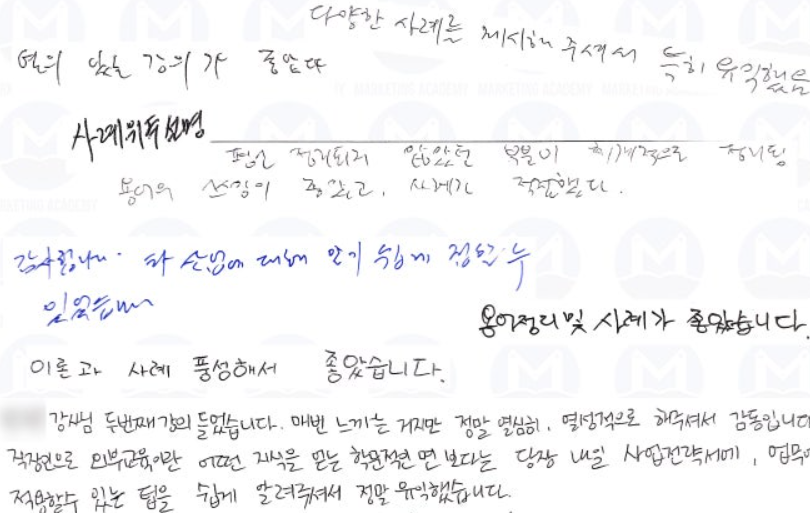 다양한 사례를 제시해 주셔서 특히 유익했음
열의 있는 강의가 좋았다
MARKETING ACADEMY MARKETING ACADEMY MARKETING ACADEMY
사례위주설명
평소 정리되지 않았던 부분이 체계적으로 정리됨
용어의 쓰임이 좋았고, 사례가 적절했다.
감사합니다. 타 산업에 대해 알기 쉽게 접할 수
있었습니다
용어정리 및 사례가 좋았습니다.
이론과 사례 풍성해서 좋았습니다.
강사님 두번째 강의 들었습니다. 매번 느끼는 거지만 정말 열심히, 열성적으로 해주셔서 감동입니다
직장인으로 외부교육이란 어떤 지식을 얻는 학문적인 면 보다는 당장 내일 사업전략서에, 업무에
적용할수 있는 팁을 쉽게 알려주셔서 정말 유익했습니다.